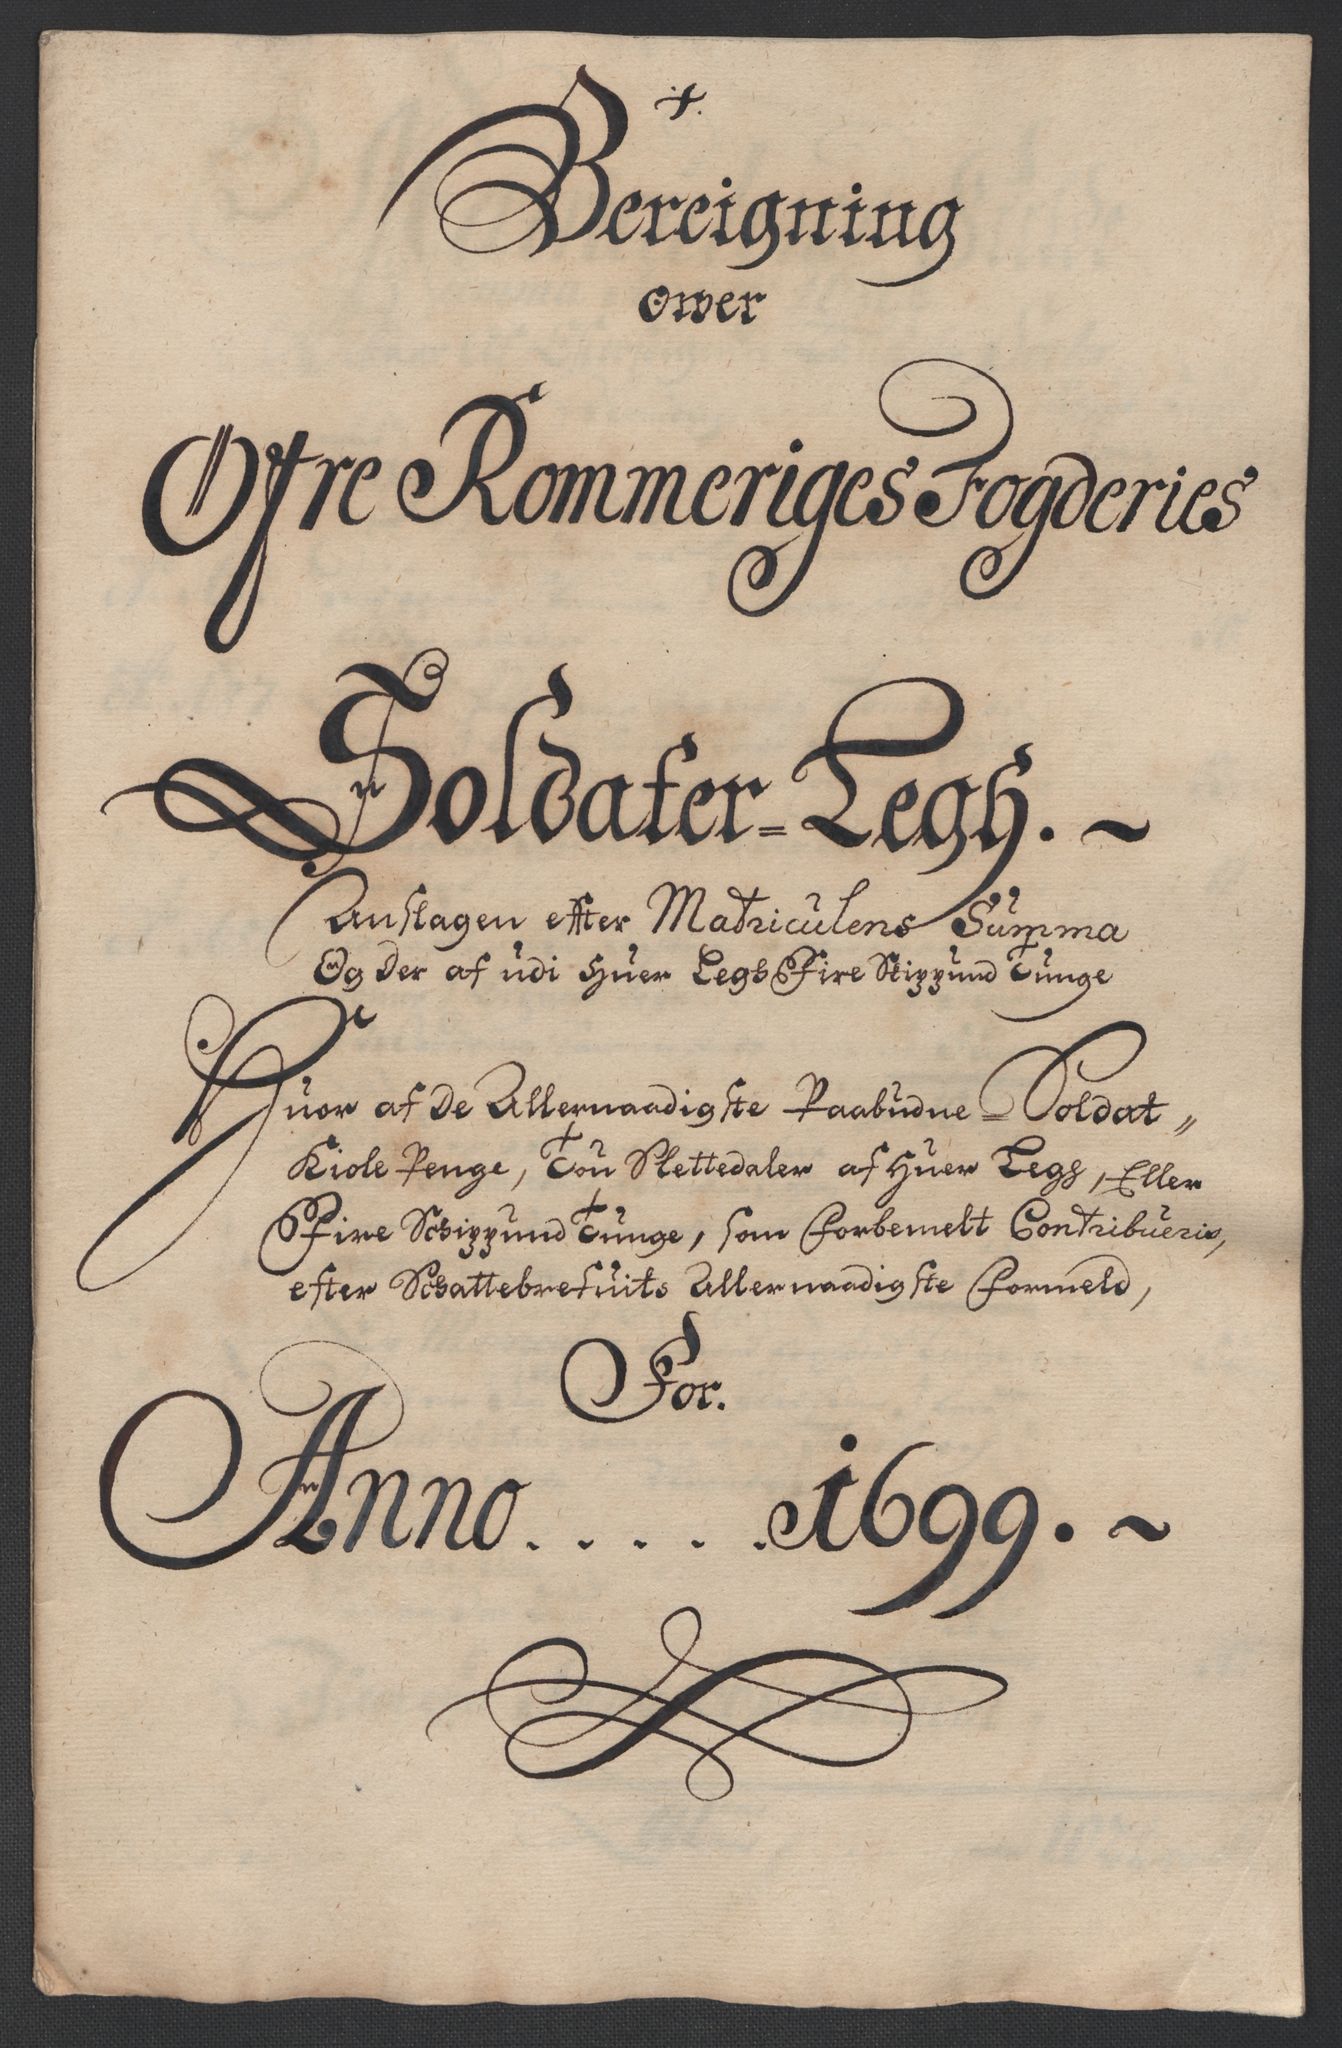 Bereigning
ower
Øfre Rommeriges Fogderies
Soldater=Legh.
Anslagen effter Matriculens Summa
Og der af udi huer Legh Fire Skippund Tunge
Huor af de Allernaadigste Paabudne Soldat,,
Kiole Penge, Tou Slettedaler af huer Legh, Eller
Fire Schippund Tunge, som forbemelt Contribueris,
efter Schattebrefuits Allernaadigste formeld,
For.
Anno . . . . . 1699.